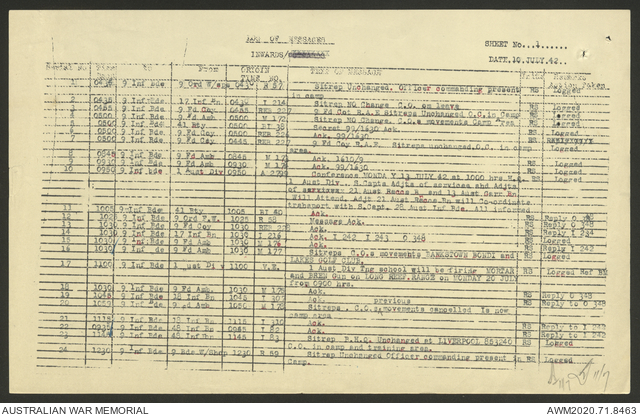 LOG OF MESSAGES
INWARDS/
SHEET No. 1......
DATE. 10 JULY 42..
Serial No TO FROM ORIGIN TIME No. TEXT OF MESSAGE Action Taken
1 0430 9 Inf Bde 9 Ord W/ 0430 R 57 Sitrep Unchanged. Officer commanding present in camp RS Logged
2 0435 9 Inf Bde. 17 Inf Bn 0430 I 214 Sitrep NO Change. C.O. on leave RS Logged
3 0455 9 Inf Bde 9 Fd Coy 0455 RES 227 9 Fd Coy R.A.E Sitreps Unchanged O.C. in Camp RS Logged
4 0500 9 Inf Bde 9 Fd Amb 0500 M 172 Sitrep NO Change C.O.s movements Camp Area RS Logged
5 0500 9 Inf Bde 41 Bty 0500 BT 38 Secret 99/1630 Ack. RS Logged
6 9 Inf Bde 9 Fd Coy Ack. 99/1630 RS
7 0445 9 Inf Bde 9 Fd Coy 0445 RES 9 Fd Coy R.A.E. Sitreps unchanged.O.C. in camp area. RS Logged
8 0545 9 Inf Bde 9 Fd Amb 0845 M 173 Ack. 1610/9 RS Logged
9 0930 9 Inf Bde 9 Fd Amb 0910 M 17 Ack. 99/1630 RS Logged
10 0950 9 Inf Bde 1 Aust Div 0950 A 2799 Conference MONDAY 13 JULY 42 at 1000 hrs H.Q. 1 Aust Div. S.Capts Adjts of services and Adjts of services 27 Aust Recce R and 13 Aust Garr Bn Will Attend, Adjt 21 Aust Recce Bn will Co-ordinate transport with S.Capt. 28 Aust Inf Bde. All informed RS Logged
11 1005 9 Inf Bde 41 Bty 1005 BT 40 Ack. RS Reply O
12 1028 9 Inf Bde 9 Ord F.W. 1025 R 58 Message Ack. RS Reply O 348
13 1030 9 Inf Bde 9 Fd Coy 1030 RES 228 Ack. RS Reply O 348
14 1030 9 Inf Bde 17 Inf Bn 1030 I 216 Ack. I 242 I 243 O 348 RS Reply I 242
15 1030 9 Inf Bde 9 Fd Amb 1030 M 176 Ack. RS Reply I 242
16 9 Inf Bde 9 Fd Amb 1030 M 177 Sitreps C.O.s movements BANKSTOWN BONDI and LAKES GOLF CLUB. RS Logged
17 1100 9 Inf Bde 1 Aust Div 1100 1 Aust Div Tng school will be firing MORTAR and BREN Gun on LONG REEF.RANGE on MONDAY 20 JULY from 0900 hrs. RS Logged Ref BM
18 1030 9 Inf Bde 9 Fd Amb 1030 M 175 Ack. RS Reply O 348
19 1045 9 Inf Bde 18 Inf Bn 1045 I 307 Ack. RS Reply O 348
20 9 Inf Bde 9 Fd Amb M 178 previous Sitreps. C.O.s movements cancelled Is now camp area RS Logged
21 1115 9 Inf Bde 18 Inf Bn 1115 I 310 Ack. RS Reply to I 242
22 0935 9 Inf Bde 48 Inf Bn 0945 I 82 Ack. RS Reply to I 242
23 1145 9 Inf Bde 48 Inf Bn 1145 I 83 Sitrep B.H.Q. Unchanged at LIVERPOOL 853240 C.O. in camp and training area. RS Logged
24 1230 9 Inf Bde 9 Bde W/Shop 1230 R 59 Sitrep Unchanged Officer commanding present in Camp. RS Logged
11/7
AUSTRALIAN WAR MEMORIAL
AWM2020.71.8463